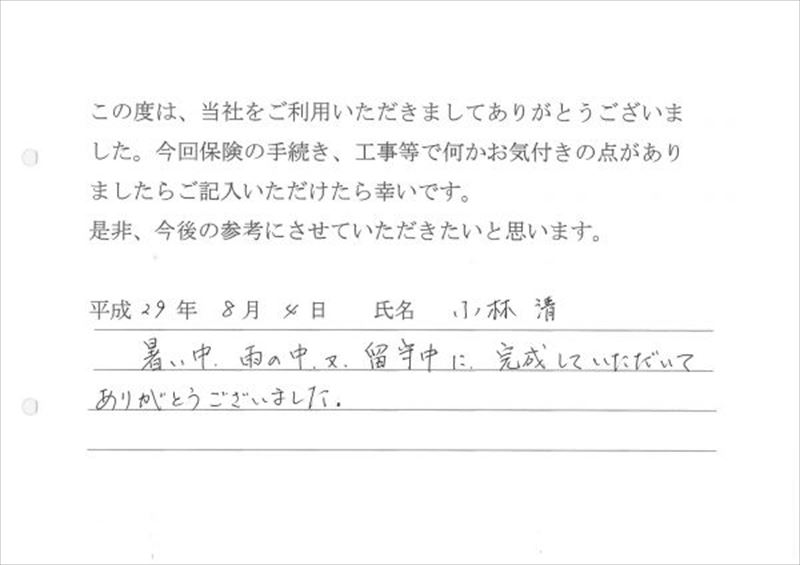 この度は、当社をご利用いただきましてありがとうございま
した。今回保険の手続き、工事等で何かお気付きの点があり
ましたらご記入いただけたら幸いです。
是非、今後の参考にさせていただきたいと思います。
平成29年 8月 4日 氏名 小林 清
暑い中、雨の中、又、留守中に、完成していただいて
ありがとうございました。